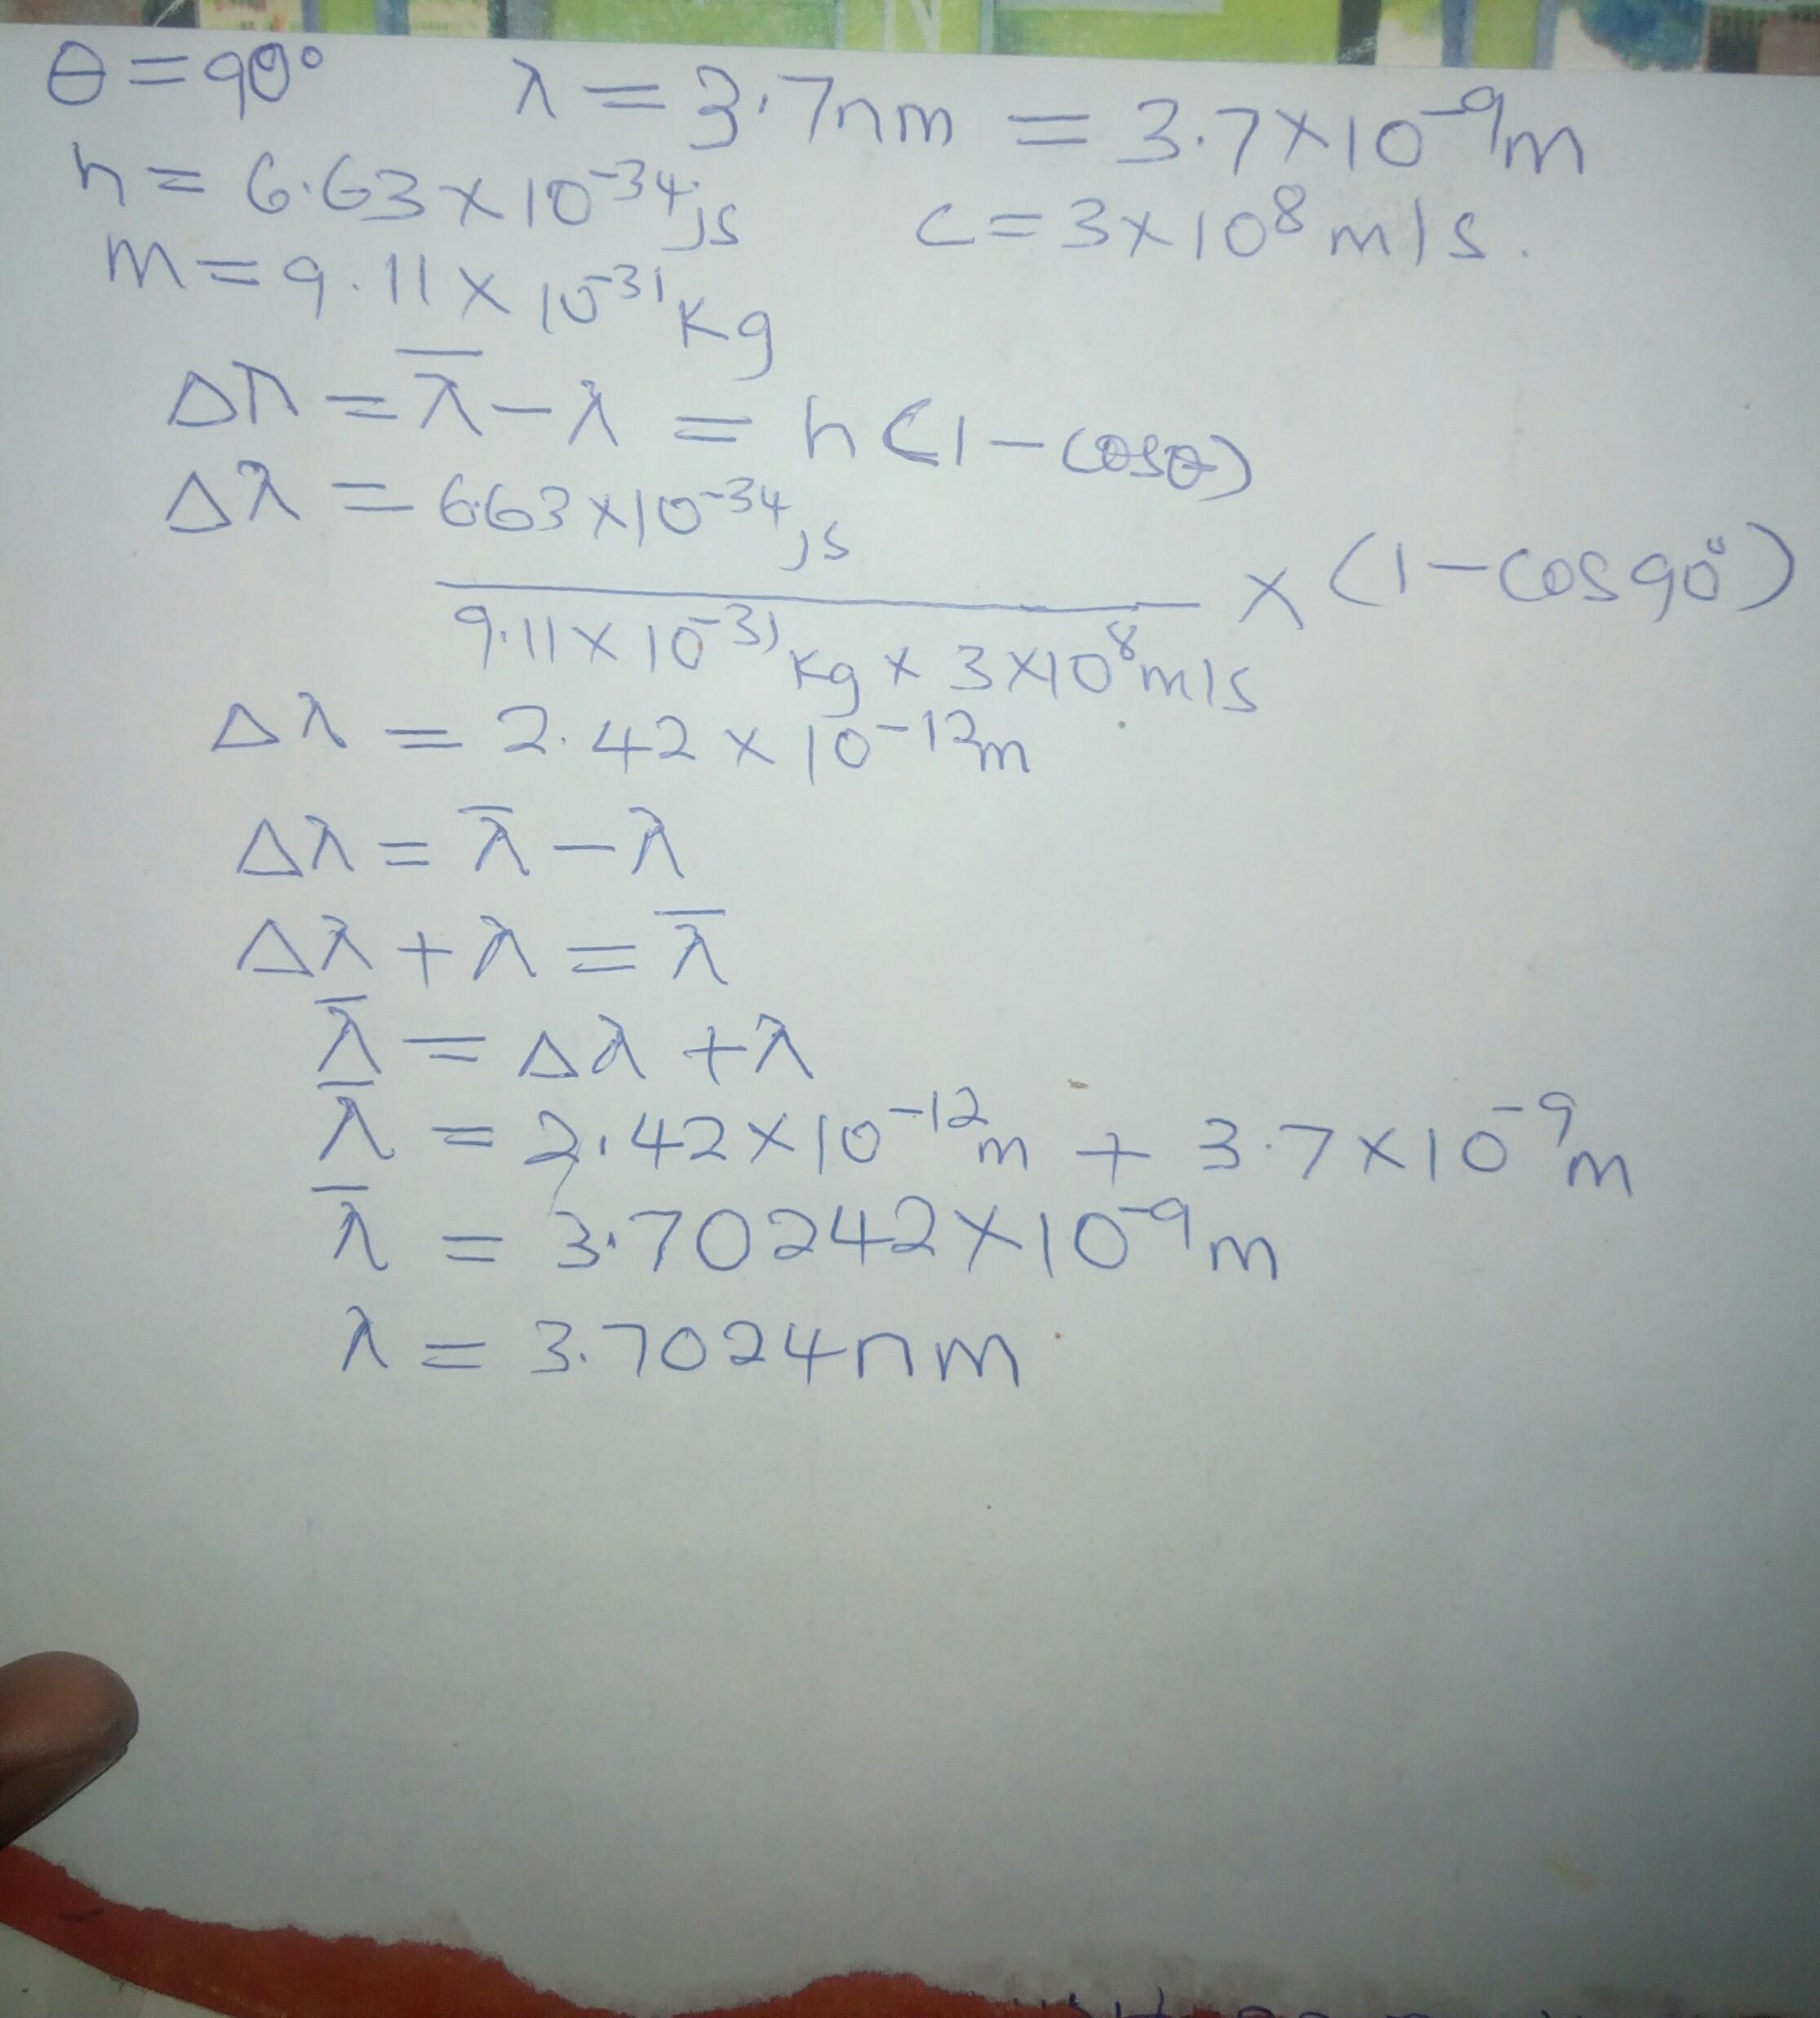 N
θ = 90° λ = 3.7nm = 3.7×10⁻⁹m
h = 6.63×10⁻³⁴Js c = 3×10⁸m/s.
m = 9.11×10⁻³¹Kg
Δλ = λ̅ − λ = h(1−cosθ)
Δλ = 6.63×10⁻³⁴Js
× (1−cos90°)
9.11×10⁻³¹Kg × 3×10⁸m/s
Δλ = 2.42×10⁻¹²m
Δλ = λ̅ − λ
Δλ + λ = λ̅
λ̅ = Δλ + λ
λ̅ = 2.42×10⁻¹²m + 3.7×10⁻⁹m
λ̅ = 3.70242×10⁻⁹m
λ = 3.7024nm